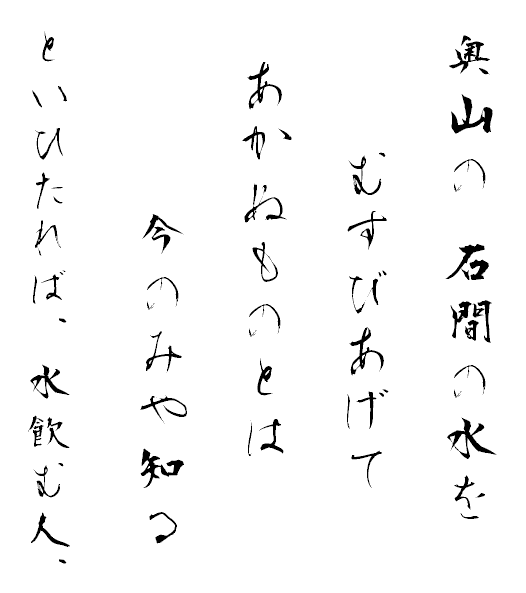 奥山の 石間の水を
むすびあげて
あかぬものとは
今のみや知る
といひたれば、水飲む人、